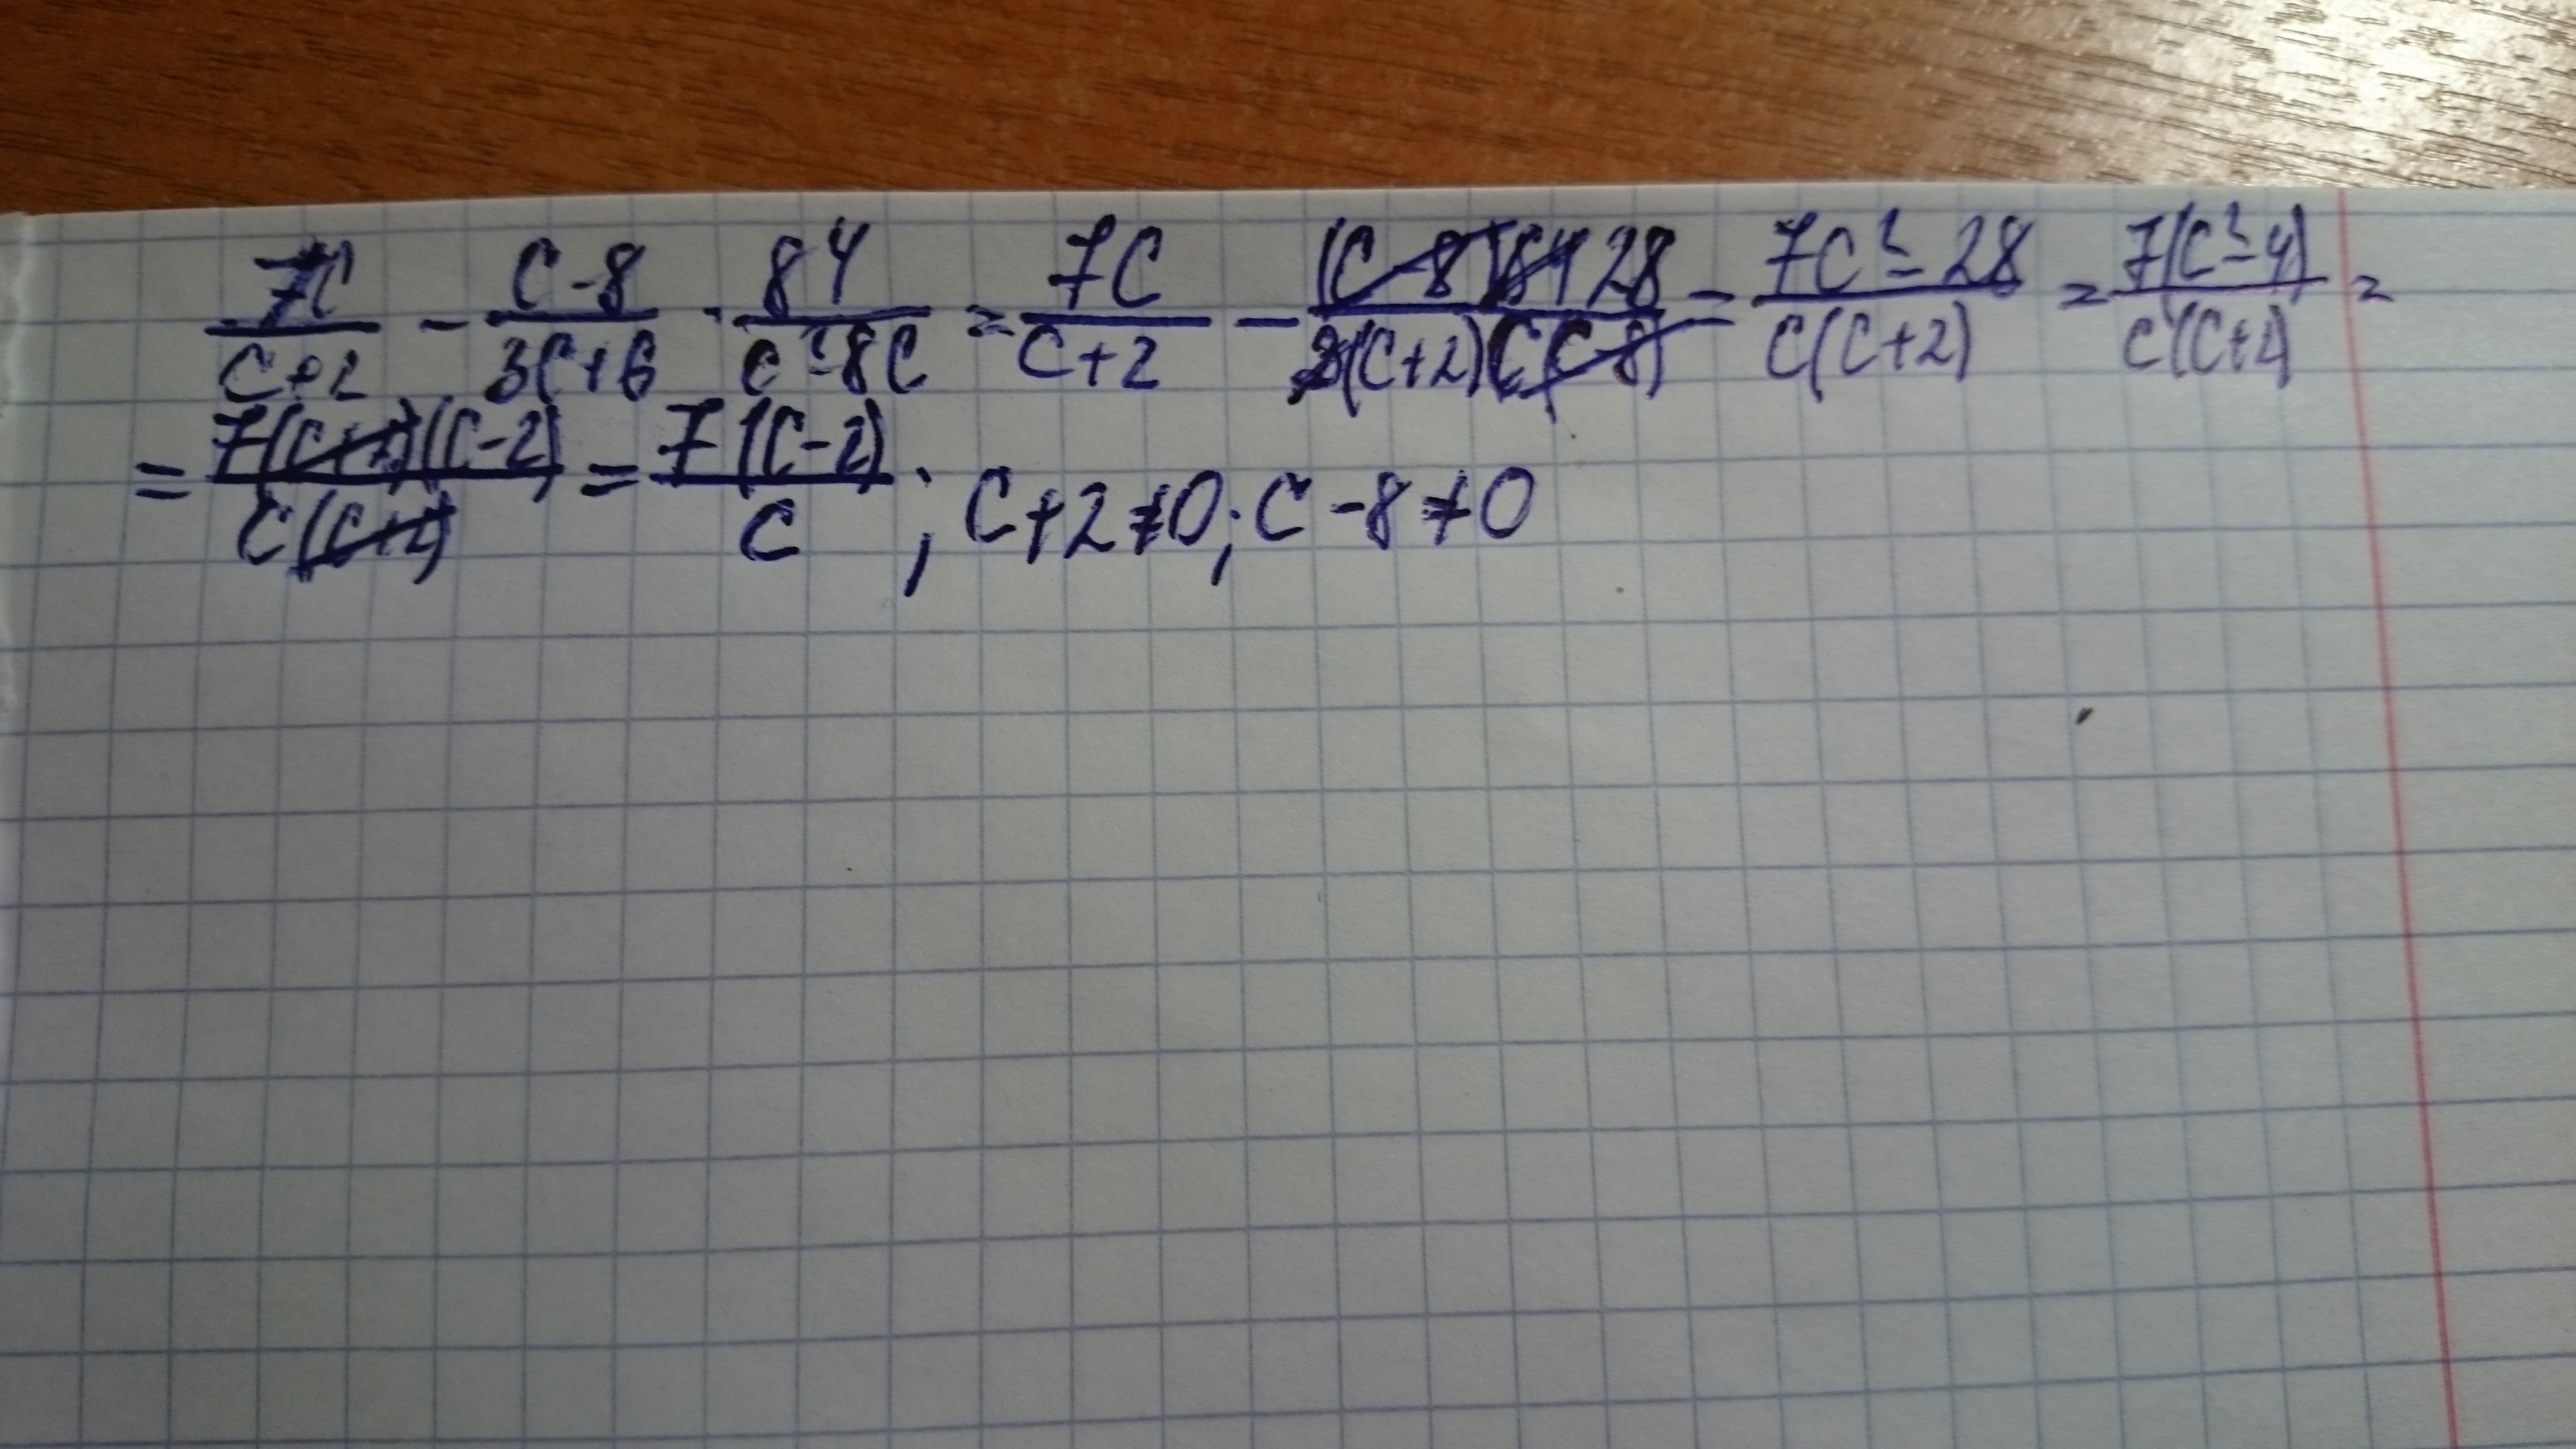 7C/(C+2) - (C-8)/(3C+6) · 84/(C²-8C) = 7C/(C+2) - (C-8)84 28/3(C+2)C(C-8) = (7C²-28)/C(C+2) = 7(C²-4)/C(C+2) =
= 7(C+2)(C-2)/C(C+2) = 7(C-2)/C ; C+2≠0; C-8≠0